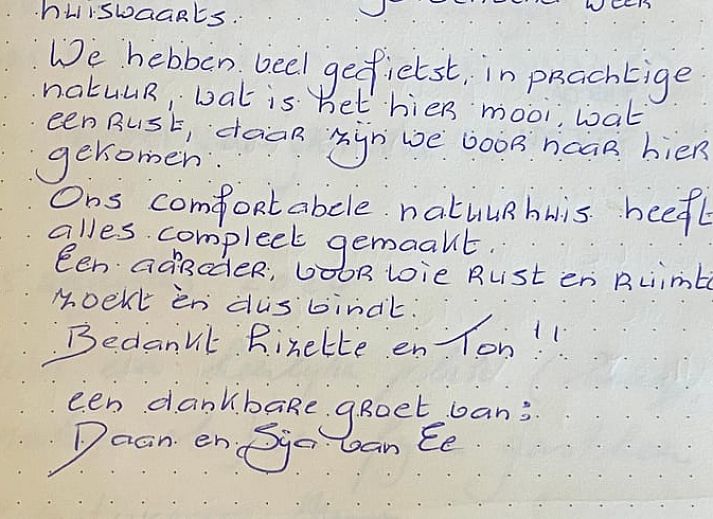 huiswaarts. week
We hebben veel gefietst, in prachtige
natuur, wat is het hier mooi, wat
een rust, daar zijn we voor naar hier
gekomen.
Ons comfortabele natuurhuis heeft
alles compleet gemaakt.
Een aanrader, voor wie rust en ruimte
zoekt èn dus vindt.
Bedankt Lizette en Ton!!
een dankbare groet van:
Daan en Sija van Ee